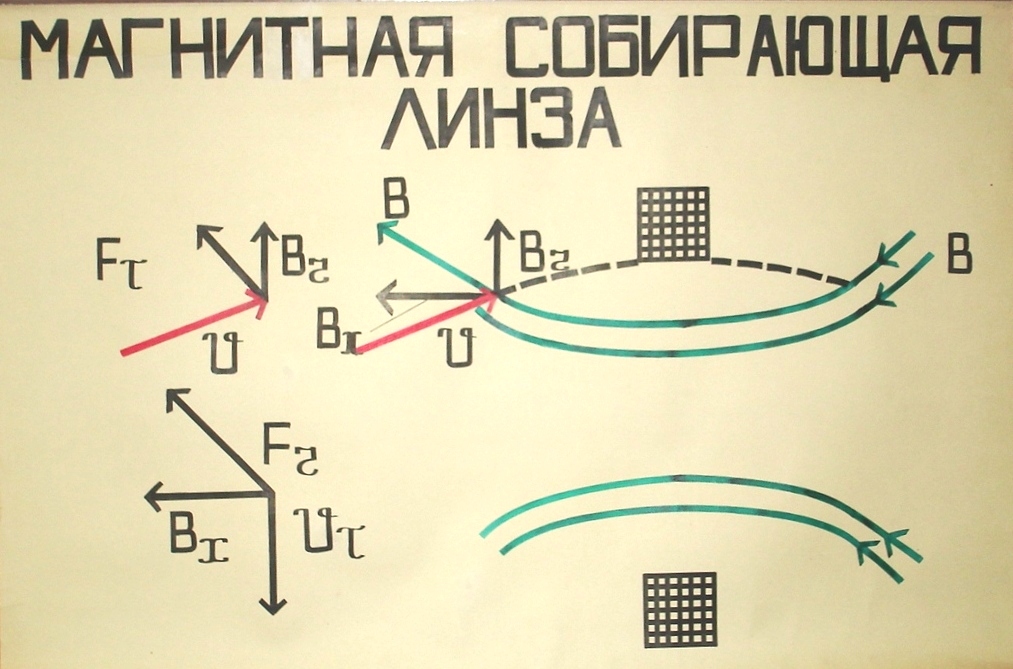 МАГНИТНАЯ СОБИРАЮЩАЯ
ЛИНЗА
B
Fτ
Bг
Bг
B
Bx
υ
υ
Fг
Bx
υτ